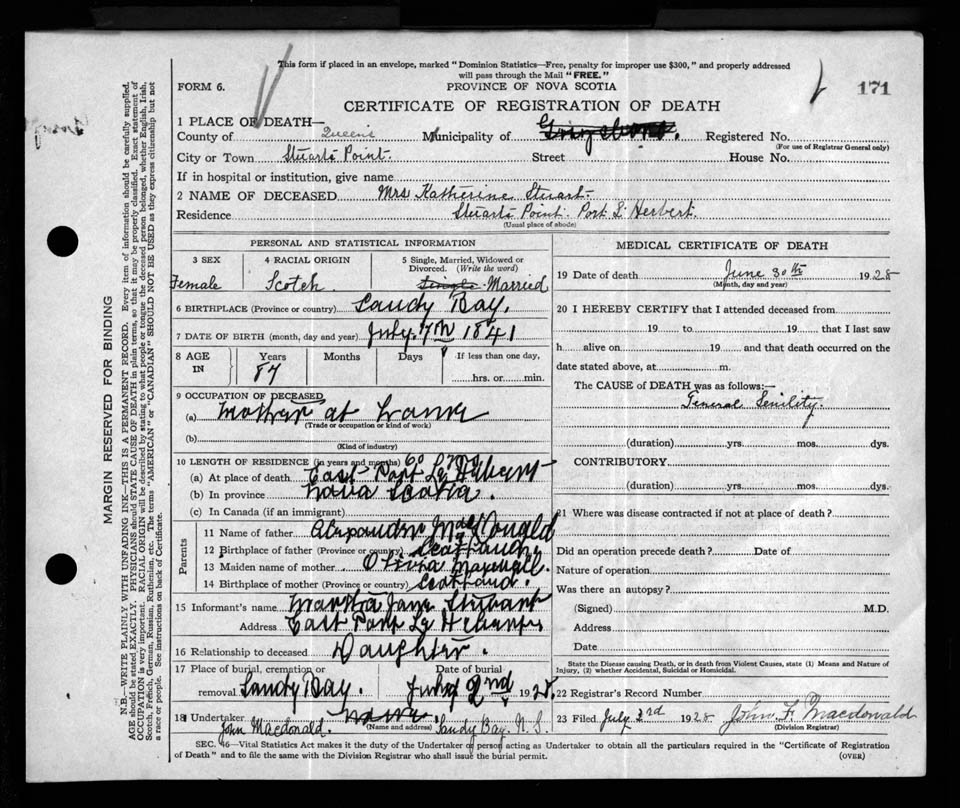 This form if placed in an envelope, marked "Dominion Statistics—Free, penalty for improper use $300," and properly addressed
will pass through the Mail "FREE."
FORM 6.
PROVINCE OF NOVA SCOTIA
171
CERTIFICATE OF REGISTRATION OF DEATH
1 PLACE OF DEATH—
County of Queens Municipality of Registered No.
(For use of Registrar General only)
City or Town Stuarts Point. Street House No.
If in hospital or institution, give name
2 NAME OF DECEASED Mrs Katherine Stuart.
Residence Stuarts Point. Port L. Herbert.
(Usual place of abode)
PERSONAL AND STATISTICAL INFORMATION
3 SEX
Female
4 RACIAL ORIGIN
Scotch
5 Single, Married, Widowed or
Divorced. (Write the word)
Single Married
6 BIRTHPLACE (Province or country) Sandy Bay.
7 DATE OF BIRTH (month, day and year) July. 7th 1841
8 AGE IN
Years
87
Months
Days
If less than one day,
hrs. or min.
9 OCCUPATION OF DECEASED
(a) Mother at home
(Trade or occupation or kind of work)
(b)
(Kind of industry)
10 LENGTH OF RESIDENCE (in years and months) 60
(a) At place of death East Port Le Hebert
(b) In province Nova Scotia.
(c) In Canada (if an immigrant)
Parents
11 Name of father Alexander MacDonald
12 Birthplace of father (Province or country) Scotland
13 Maiden name of mother Olivia
14 Birthplace of mother (Province or country) Scotland.
15 Informant's name Martha Jane Stewart
Address East Port Le Hebert
16 Relationship to deceased Daughter.
17 Place of burial, cremation or
removal Sandy Bay.
Date of burial
July 2nd 1928.
18 Undertaker none.
John Macdonald. (Name and address) Sandy Bay. N. S.
MEDICAL CERTIFICATE OF DEATH
19 Date of death June 30th 1928
(Month, day and year)
20 I HEREBY CERTIFY that I attended deceased from
19 to 19 that I last saw
h alive on 19 and that death occurred on the
date stated above, at m.
The CAUSE of DEATH was as follows:—
General Senility.
(duration) yrs. mos. dys.
CONTRIBUTORY.
(duration) yrs. mos. dys.
21 Where was disease contracted if not at place of death?
Did an operation precede death? Date of
Nature of operation
Was there an autopsy?
(Signed) M.D.
Address
Date
State the Disease causing Death, or in death from Violent Causes, state (1) Means and Nature of
Injury, (2) whether Accidental, Suicidal or Homicidal.
22 Registrar's Record Number
23 Filed July 3rd 1928 John F. Macdonald
(Division Registrar)
SEC. 16—Vital Statistics Act makes it the duty of the Undertaker or person acting as Undertaker to obtain all the particulars required in the "Certificate of Registration
of Death" and to file the same with the Division Registrar who shall issue the burial permit.
(OVER)
MARGIN RESERVED FOR BINDING
N.B.—WRITE PLAINLY WITH UNFADING INK—THIS IS A PERMANENT RECORD. Every item of information should be carefully supplied.
AGE should be stated EXACTLY. PHYSICIANS should STATE CAUSE OF DEATH in plain terms, so that it may be properly classified. Exact statement of
OCCUPATION is very important. RACIAL ORIGIN will be described by stating to what people or tongue the deceased person belonged, whether English, Irish,
Scotch, French, German, Russian, Ruthenian, etc. The terms "AMERICAN" or "CANADIAN" SHOULD NOT BE USED as they express citizenship but not
a race or people. See instructions on back of Certificate.